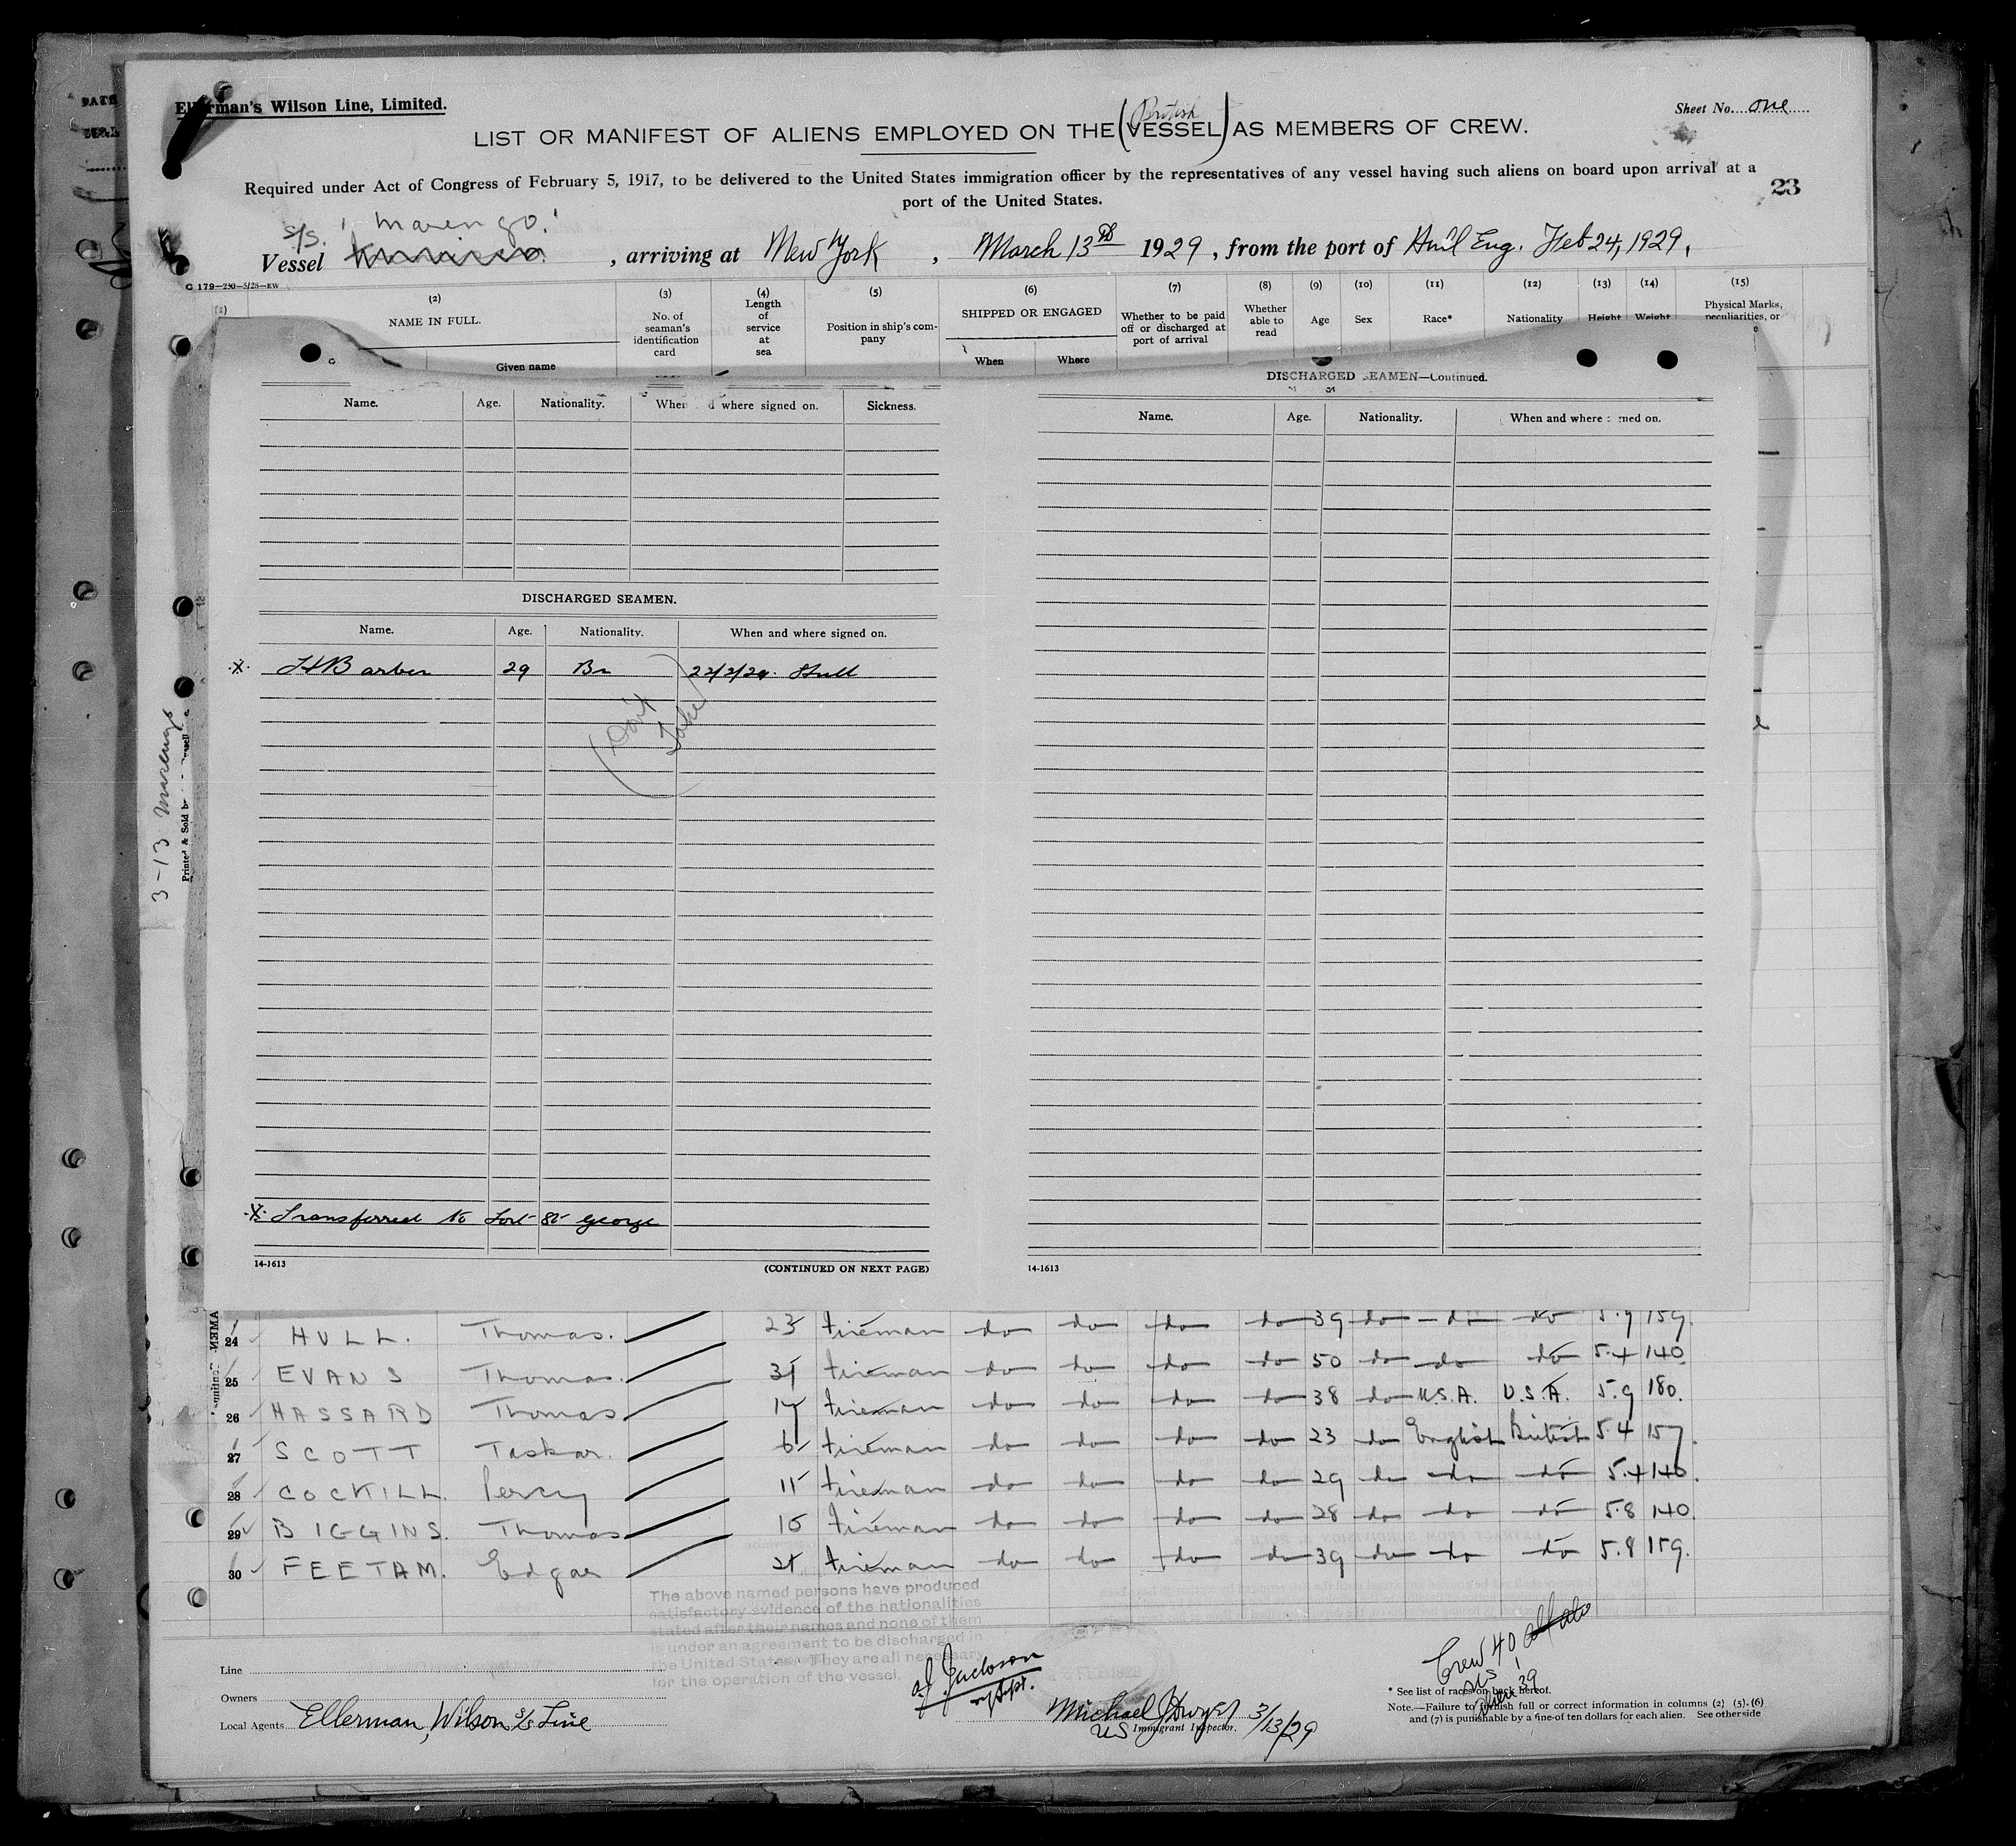 Ellerman's Wilson Line, Limited.
Sheet No. one
British
LIST OR MANIFEST OF ALIENS EMPLOYED ON THE (VESSEL) AS MEMBERS OF CREW.
Required under Act of Congress of February 5, 1917, to be delivered to the United States immigration officer by the representatives of any vessel having such aliens on board upon arrival at a
port of the United States.
23
S/S. 'Marengo'
Vessel , arriving at New York , March 13th 1929, from the port of Hull Eng. Feb 24, 1929,
G 179—250—5/28—EW
(1) (2) (3) (4) (5) (6) (7) (8) (9) (10) (11) (12) (13) (14) (15)
NAME IN FULL. No. of seaman's identification card Length of service at sea Position in ship's company SHIPPED OR ENGAGED Whether to be paid off or discharged at port of arrival Whether able to read Age Sex Race* Nationality Height Weight Physical Marks, peculiarities, or
Given name When Where
DISCHARGED SEAMEN—Continued.
Name. Age. Nationality. When where signed on. Sickness.
Name. Age. Nationality. When and where signed on.
DISCHARGED SEAMEN.
Name. Age. Nationality. When and where signed on.
X H Barber 29 Br 22/2/29. Hull
(Don't Take)
3-13 Marengo
Printed & Sold by
X Transferred to Fort St George
14-1613 (CONTINUED ON NEXT PAGE)
14-1613
24 HULL. Thomas. 23 fireman do do do do 39 do do do 5.9 159.
25 EVANS Thomas. fireman do do do do 50 do do do 5.4 140
26 HASSARD Thomas 17 fireman do do do do 38 do U.S.A. U.S.A. 5.9 180.
27 SCOTT Taskar. 6 fireman do do do do 23 do English British 5.4 157.
28 COCKILL. Percy 11 fireman do do do do 29 do do do 5.4 140.
29 BIGGINS. Thomas 10 fireman do do do do 28 do do do 5.8 140.
30 FEETAM. Edgar fireman do do do do 39 do do do 5.8 159.
The above named persons have produced
satisfactory evidence of the nationalities
stated after their names and none of them
is under an agreement to be discharged in
the United States. They are all necessary
for the operation of the vessel.
Line
Owners
Local Agents Ellerman, Wilson S/S Line
Jackson
Michael
US Immigrant Inspector. 3/13/29
Crew 40
US 1
Alien 39
* See list of races on back hereof.
Note.—Failure to furnish full or correct information in columns (2) (5). (6)
and (7) is punishable by a fine of ten dollars for each alien. See other side